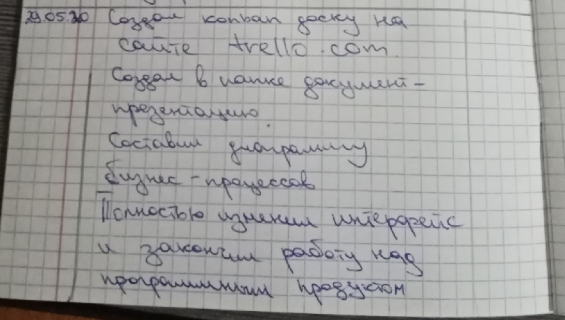 29.05.20 Создал канбан доску на
сайте trello.com.
Создал в папке документ-
презентацию.
Составил диаграмму
бизнес-процессов
Полностью изменил интерфейс
и закончил работу над
программным продуктом